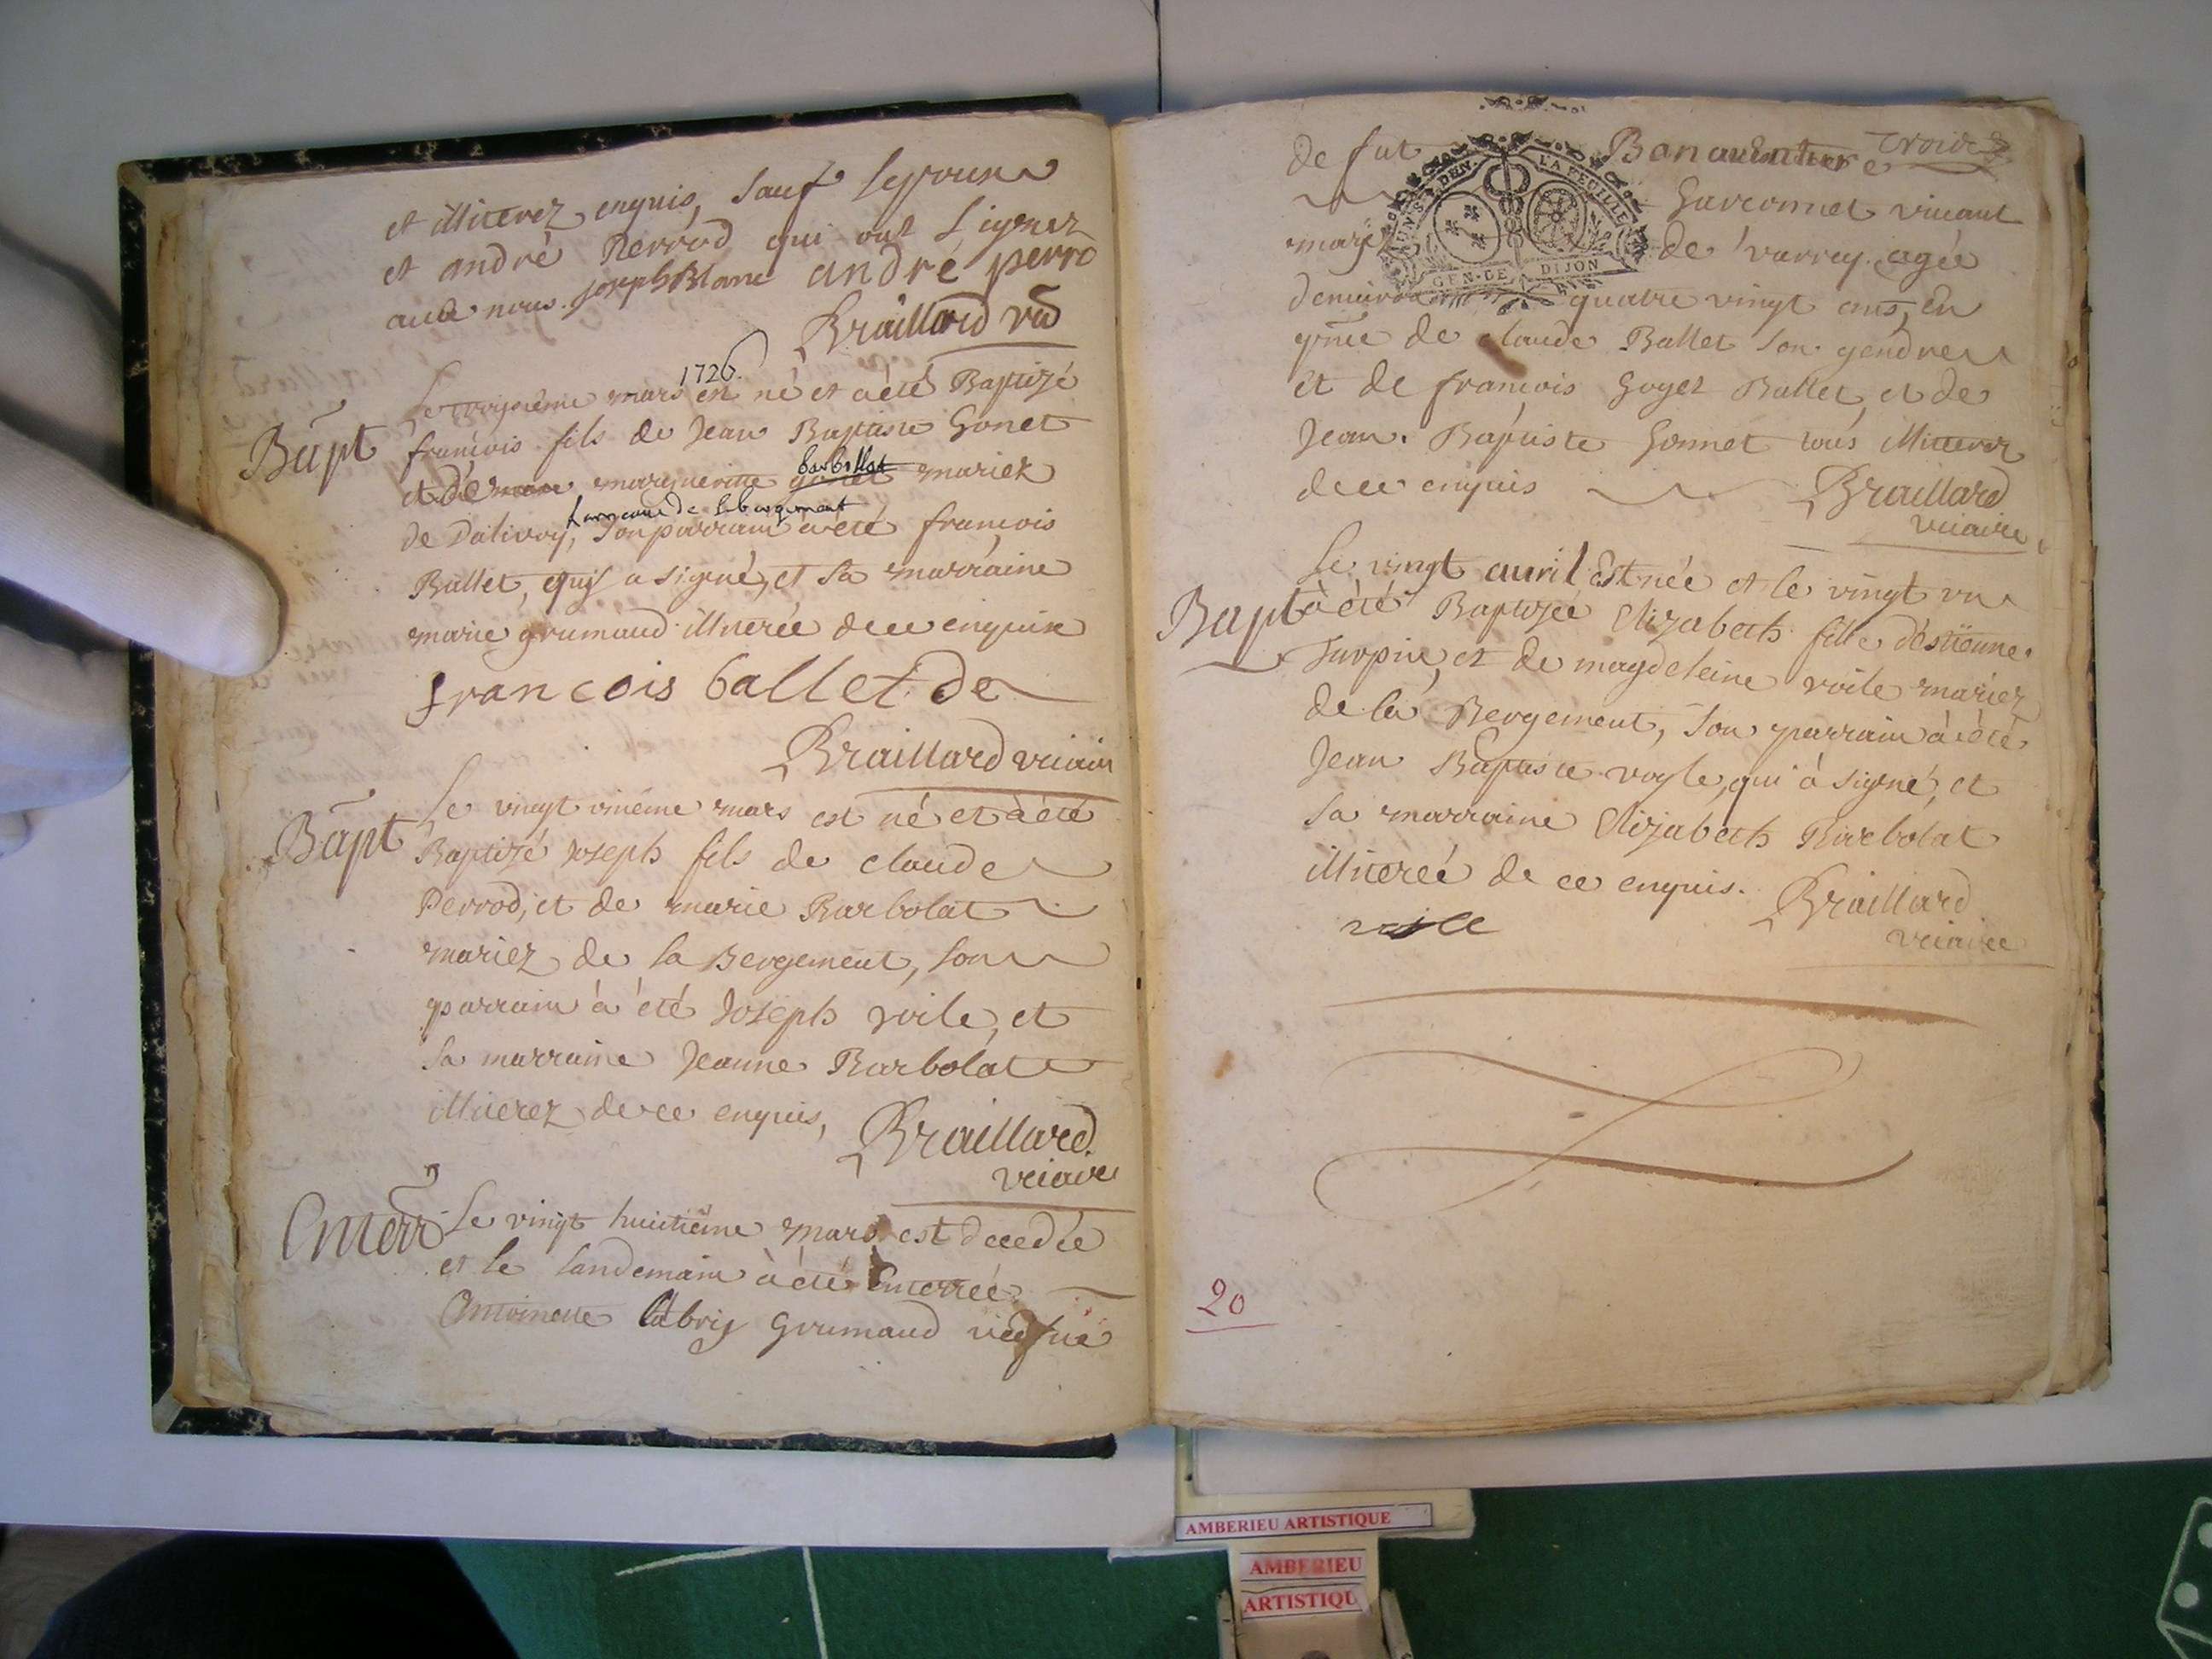 et illiterez enquis, sauf
et andré Perrod qui ont signez
auec nous. Joseph Blanc andré perro
Braillard
1726.
Le troisiême mars est né et a été Baptizé
Bapt francois fils de Jean Baptiste Gonet
barbollat
et de marguerite gonet mariez
hameau de labergement
de Dalivoy, son parrain a été francois
Ballet, qui a signé, et sa marraine
marie grumaud illiterée de ce enquise
francois ballet de
Braillard vicaire
Le vingt uniéme mars est né et à été
Bapt Baptizé Joseph fils de claude
Perrod, et de marie Barbolat
mariez de la Bergement, son
parrain à été Joseph voile, et
sa marraine Jeanne Barbolat
illiterez de ce enquis,
Braillard
vicaire
Enterr Le vingt huitiême mars est decedée
et le landemain à été Enterrée
Antoinette labris Grumaud vefue
de fut Bonauenture trois
Garconnet viuant
mariez de varrey agée
denuiron quatre vingt ans, en
pnce de claude Ballet son gendre
et de francois Goyet Ballet, et de
Jean Baptiste Gonnet tous illiterez
de ce enquis Braillard
vicaire
UN S. 8 DEN. LA FEUILLE
GEN. DE DIJON
Le vingt auril Est née et le vingt un
Bapt à été Baptizée Elizabeth fille d'éstienne
Turpin, et de magdeleine voile mariez
de la Bergement, son parrain à été
Jean Baptiste voyle, qui à signé, et
sa marraine Elizabeth Barbolat
illiterée de ce enquis. Braillard
voile vicaire
20
AMBERIEU ARTISTIQUE
AMBERIEU
ARTISTIQU